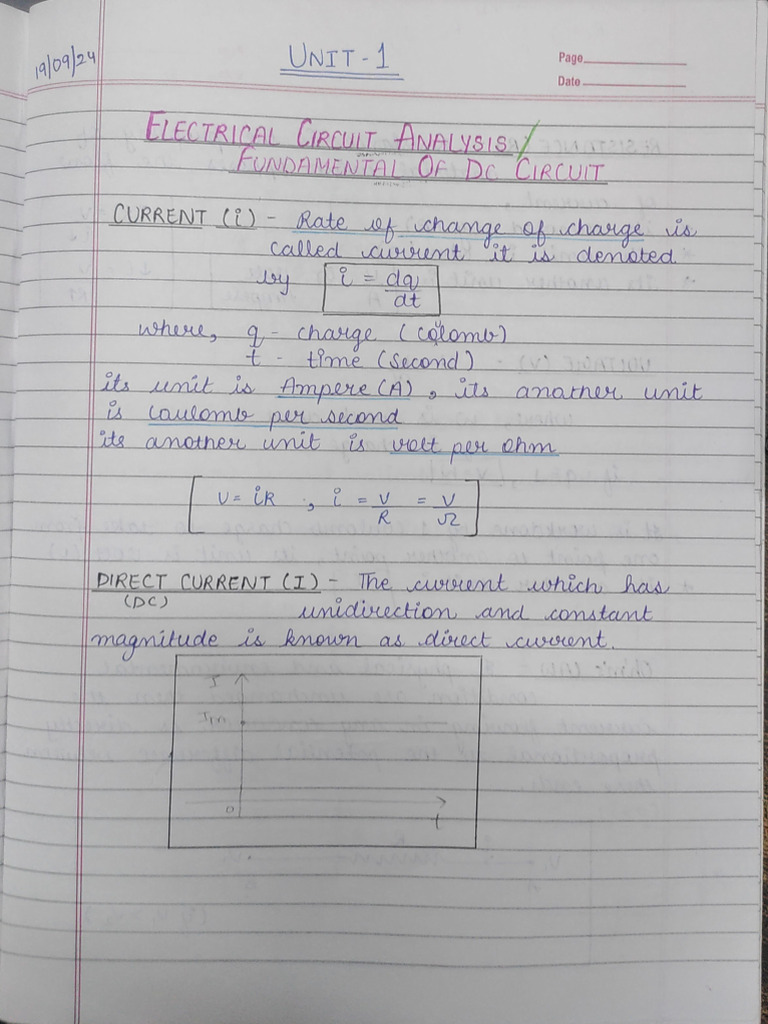 19/09/24
UNIT-1
Page
Date
ELECTRICAL CIRCUIT ANALYSIS/
FUNDAMENTAL OF DC CIRCUIT
CURRENT (i) - Rate of change of charge is
called current it is denoted
by i = dq/dt
where, q - charge (Colomb)
t - time (second)
its unit is Ampere (A), its anather unit
is Coulomb per second
its another unit is volt per ohm
V = iR , i = V/R = V/Ω
DIRECT CURRENT (I) - The current which has
(DC) unidirection and constant
magnitude is known as direct current.
I
Im
0
t